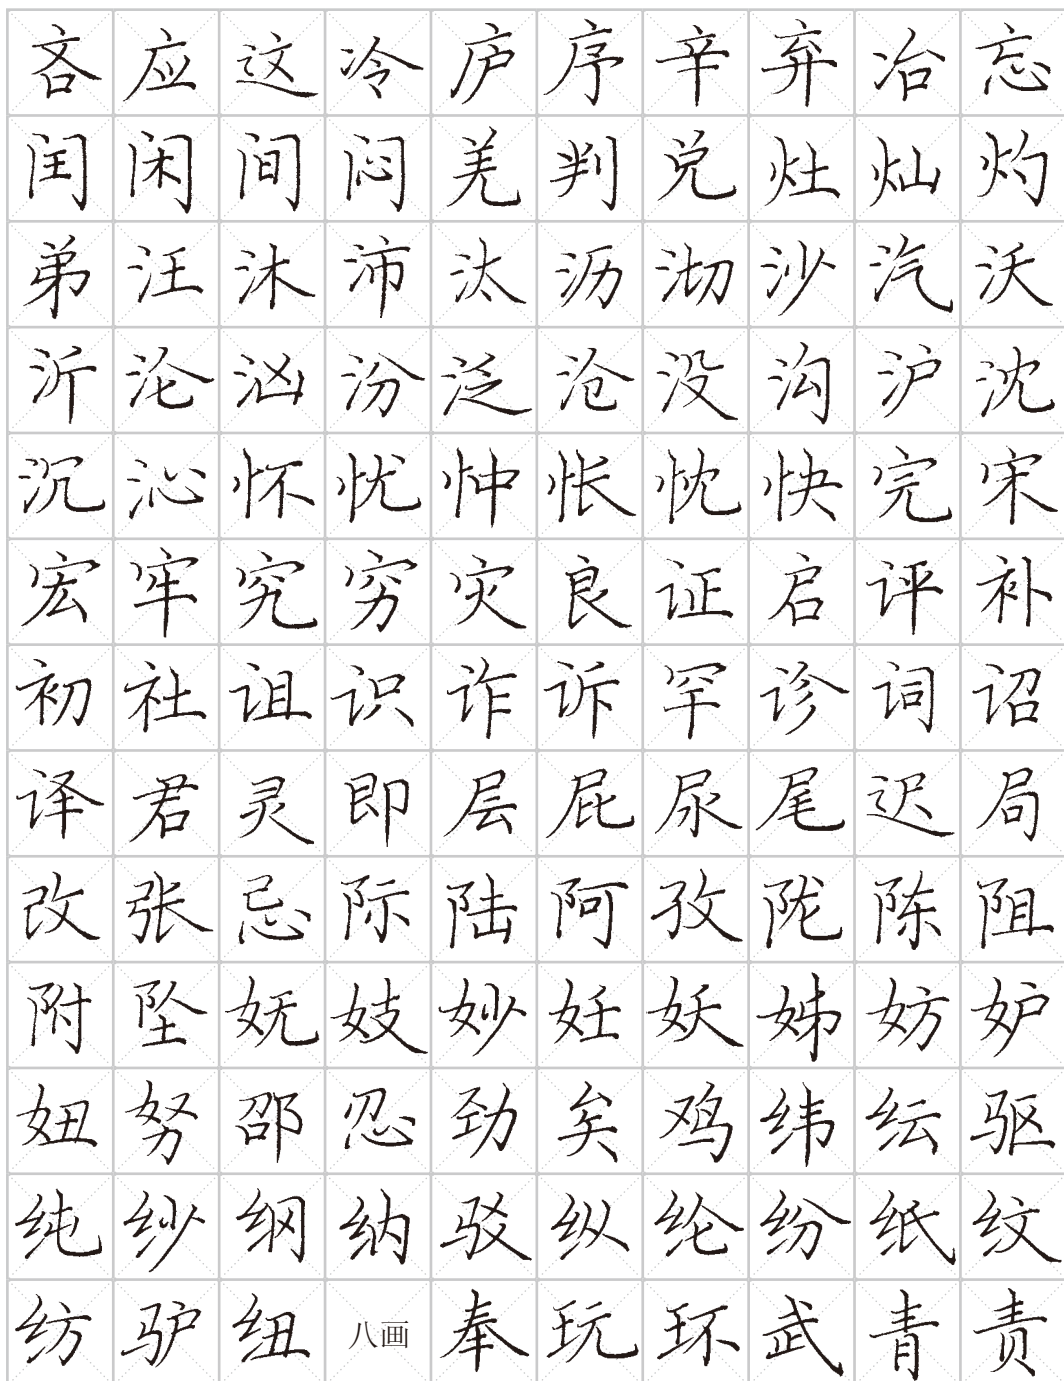 吝应这冷庐序辛弃冶忘
闰闲间闷羌判兑灶灿灼
弟汪沐沛汰沥沏沙汽沃
沂沦汹汾泛沧没沟沪沈
沉沁怀忧忡怅忱快完宋
宏牢究穷灾良证启评补
初社诅识诈诉罕诊词诏
译君灵即层屁尿尾迟局
改张忌际陆阿孜陇陈阻
附坠妩妓妙妊妖姊妨妒
妞努邵忍劲矣鸡纬纭驱
纯纱纲纳驳纵纶纷纸纹
纺驴纽八画奉玩环武青责